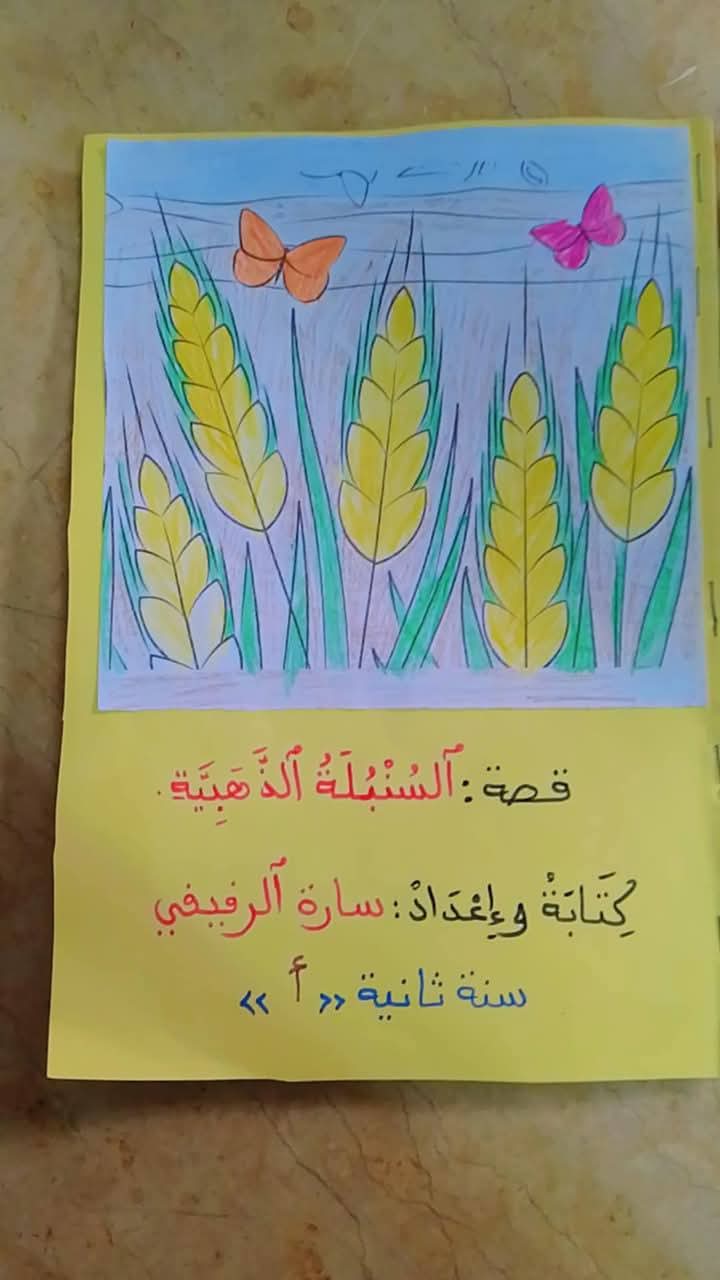 قصة: ٱلسُنْبُلَةُ ٱلذَّهَبِيَّةِ.
كِتَابَةُ وإِعْدَادْ: سارة ٱلرفيفي
سنة ثانية «أ»